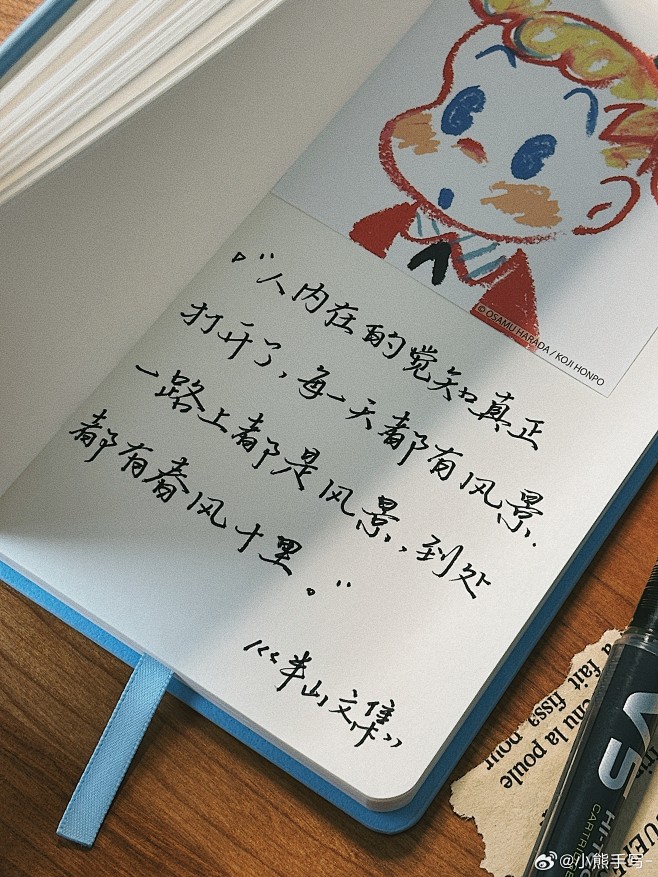 ©OSAMU HARADA / KOJI HONPO
“人内在的觉知真正
打开了,每一天都有风景.
一路上都是风景,到处
都有春风十里。”
《半山文集》
a fait
fissa
chu la poule
pour
V5
HI-TE
CARTRI
@小熊手写-